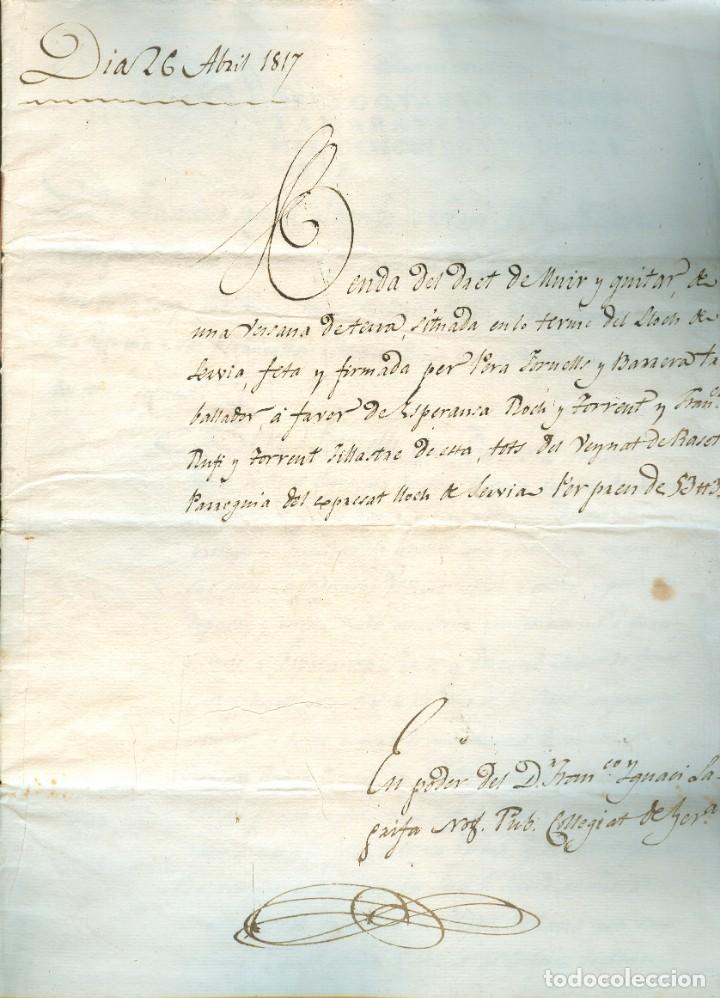 Dia 26 Abril 1817
Venda del dret de lluir y quitar, de
una Vesana de terra, situada en lo terme del Lloch de
Servia, feta y firmada per Pera Fornells y Barrera tre
ballador, á favor de Esperansa Roch y Torrent y Fran.co
Rufi y Torrent fillastre de esta, tots del Veynat de
Parroquia del expresat lloch de Servia Per preu de 53 ₶ 3
En poder del D.r Fran.co y Ignaci La-
grifa Not. Pub. Collegiat de Ger.a
todocoleccion